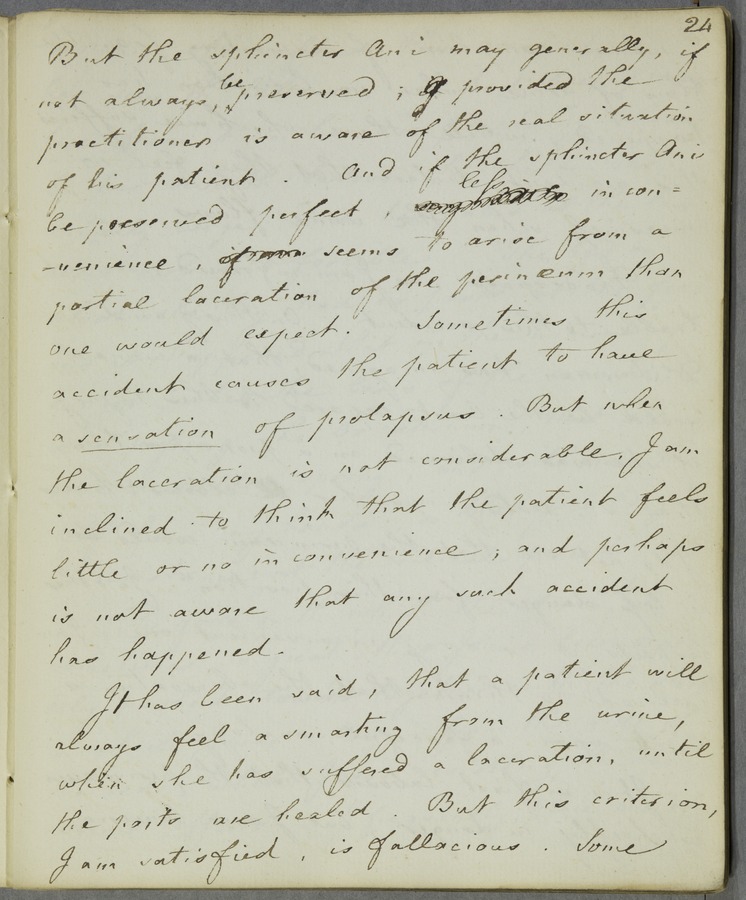 24
But the sphincter Ani may generally, if
not always, be preserved ; provided the
practitioner is aware of the real situation
of his patient . And if the sphincter Ani
be preserved perfect , less in con=
-venience , seems to arise from a
partial laceration of the perinæum than
one would expect . Sometimes this
accident causes the patient to have
a sensation of prolapsus . But when
the laceration is not considerable, I am
inclined to think that the patient feels
little or no inconvenience ; and perhaps
is not aware that any such accident
has happened.
It has been said, that a patient will
always feel a smarting from the urine,
when she has suffered a laceration, until
the parts are healed . But this criterion,
I am satisfied , is fallacious . Some